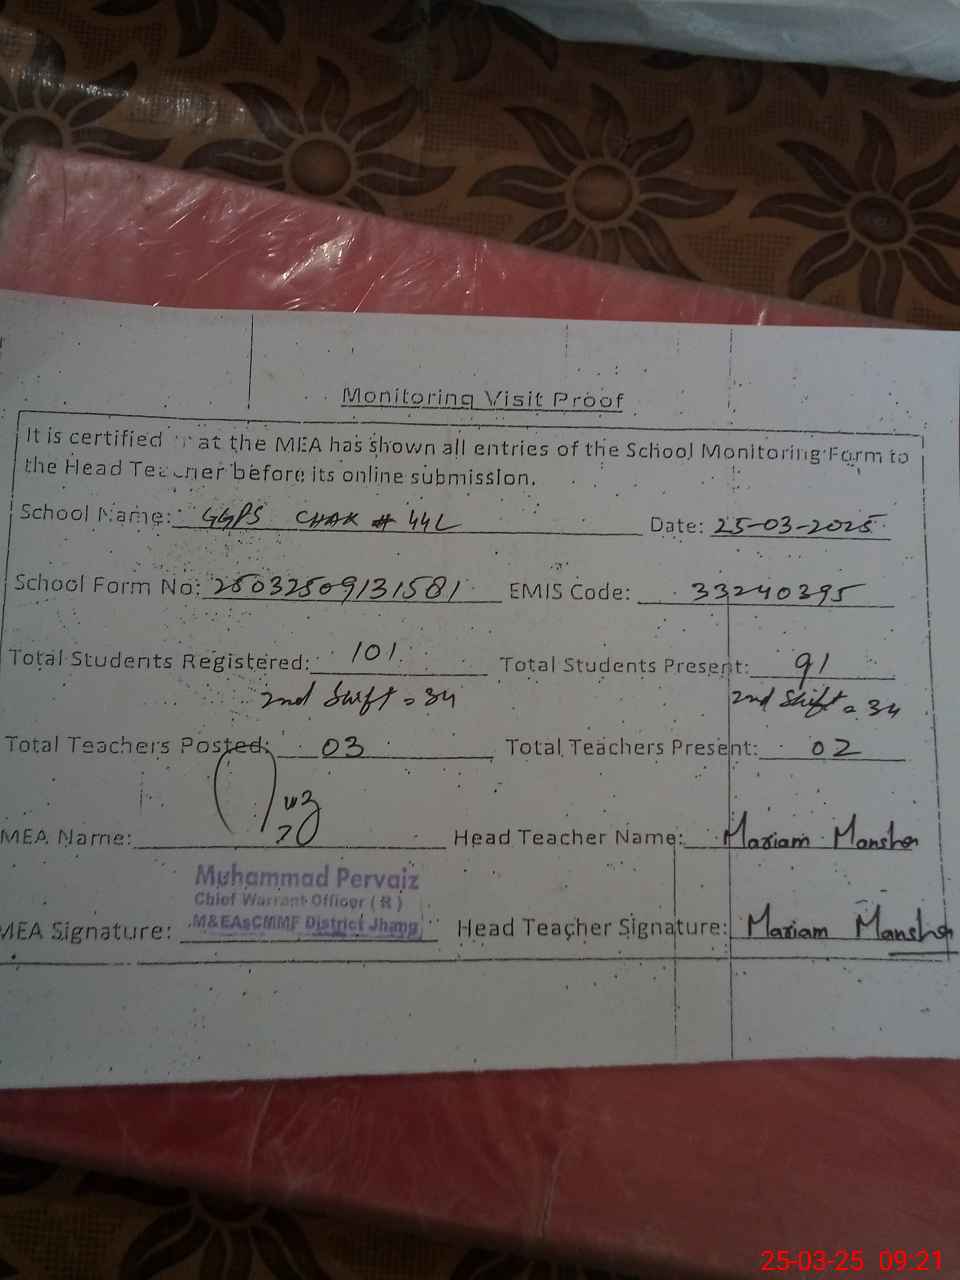 Monitoring Visit Proof
It is certified that the MEA has shown all entries of the School Monitoring Form to
the Head Teacher before its online submission.
School Name: GGPS CHAK # 44L Date: 25-03-2025
School Form No: 25032509131581 EMIS Code: 33240395
Total Students Registered: 101 Total Students Present: 91
2nd Shift = 34 2nd Shift = 34
Total Teachers Posted: 03 Total Teachers Present: 02
MEA Name: Head Teacher Name: Mariam Mansha
Muhammad Pervaiz
Chief Warrant Officer (R)
M&EAsCMMF District Jhang
MEA Signature: Head Teacher Signature: Mariam Mansha
25-03-25 09:21